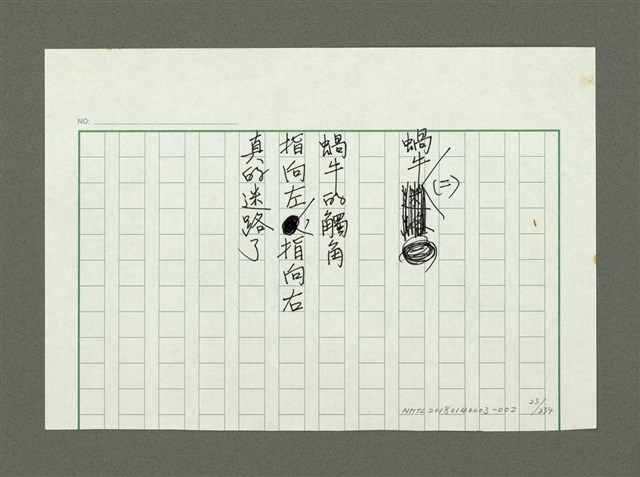 NO:
蝸牛(二)
蝸牛的觸角
指向左指向右
真的迷路了
NMTL20180142003-002
23/234